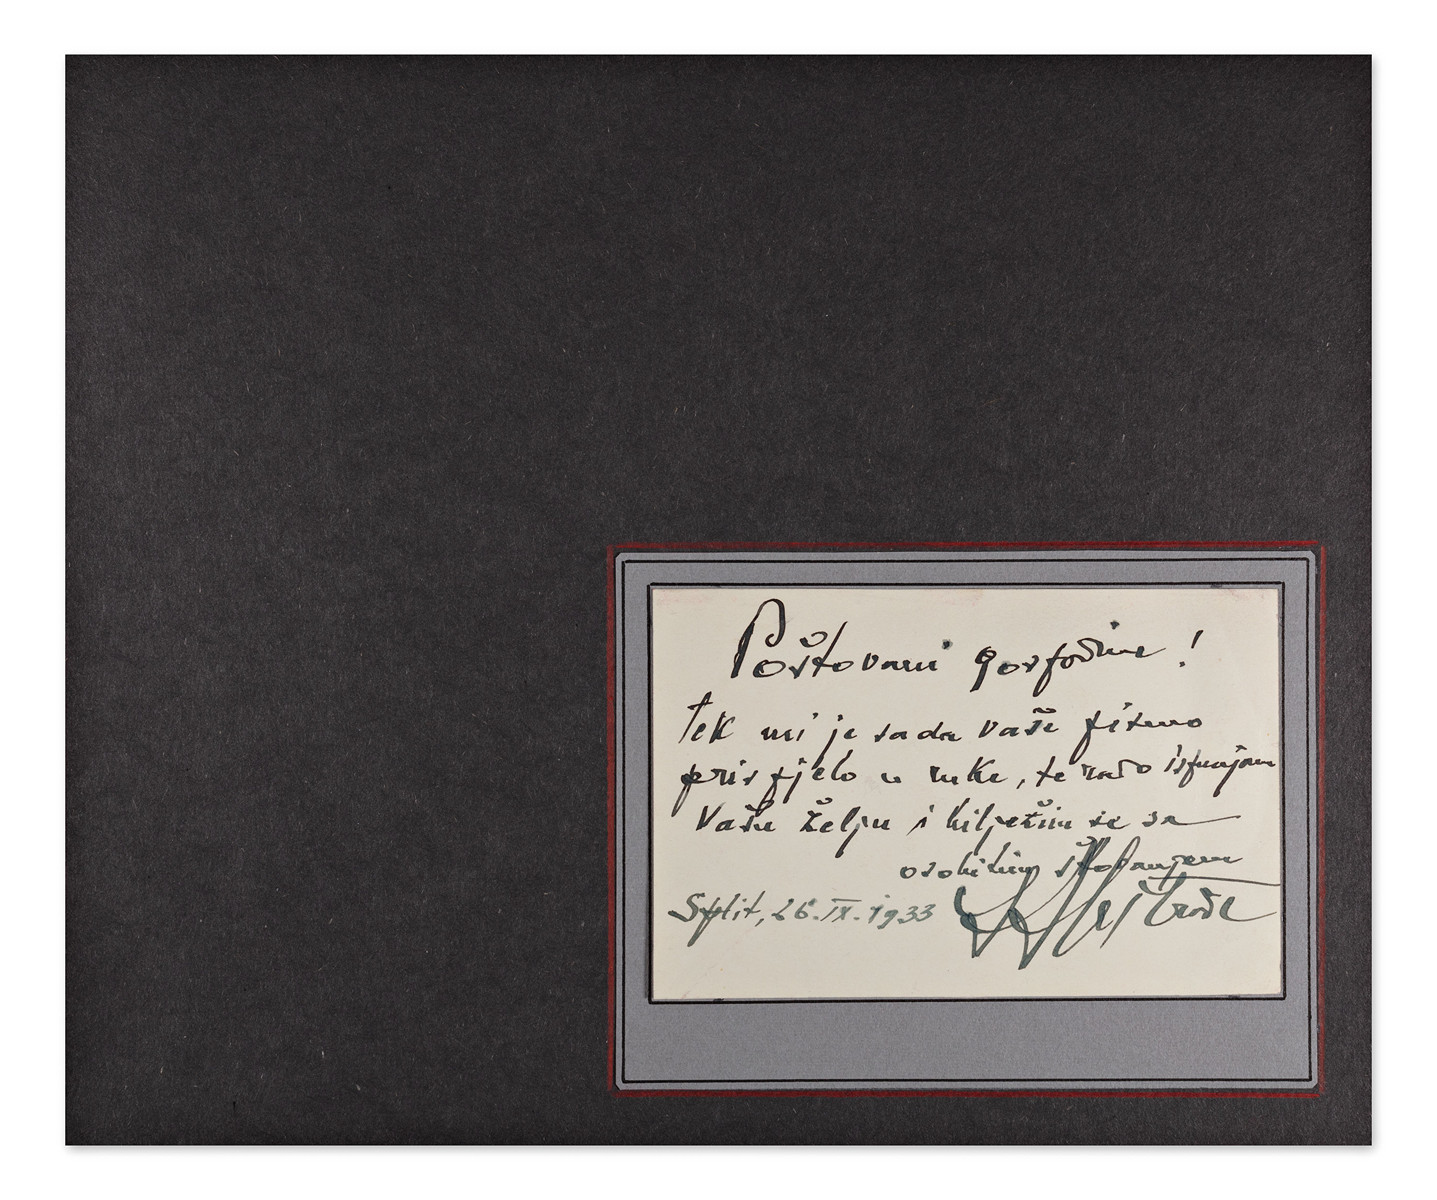 Poštovani gospodine!
Tek mi je sada vaše pismo
prispjelo u ruke, te rado ispunjam
Vašu želju i bilježim se sa
osobitim štovanjem
Split, 26.IX.1933 Meštrović